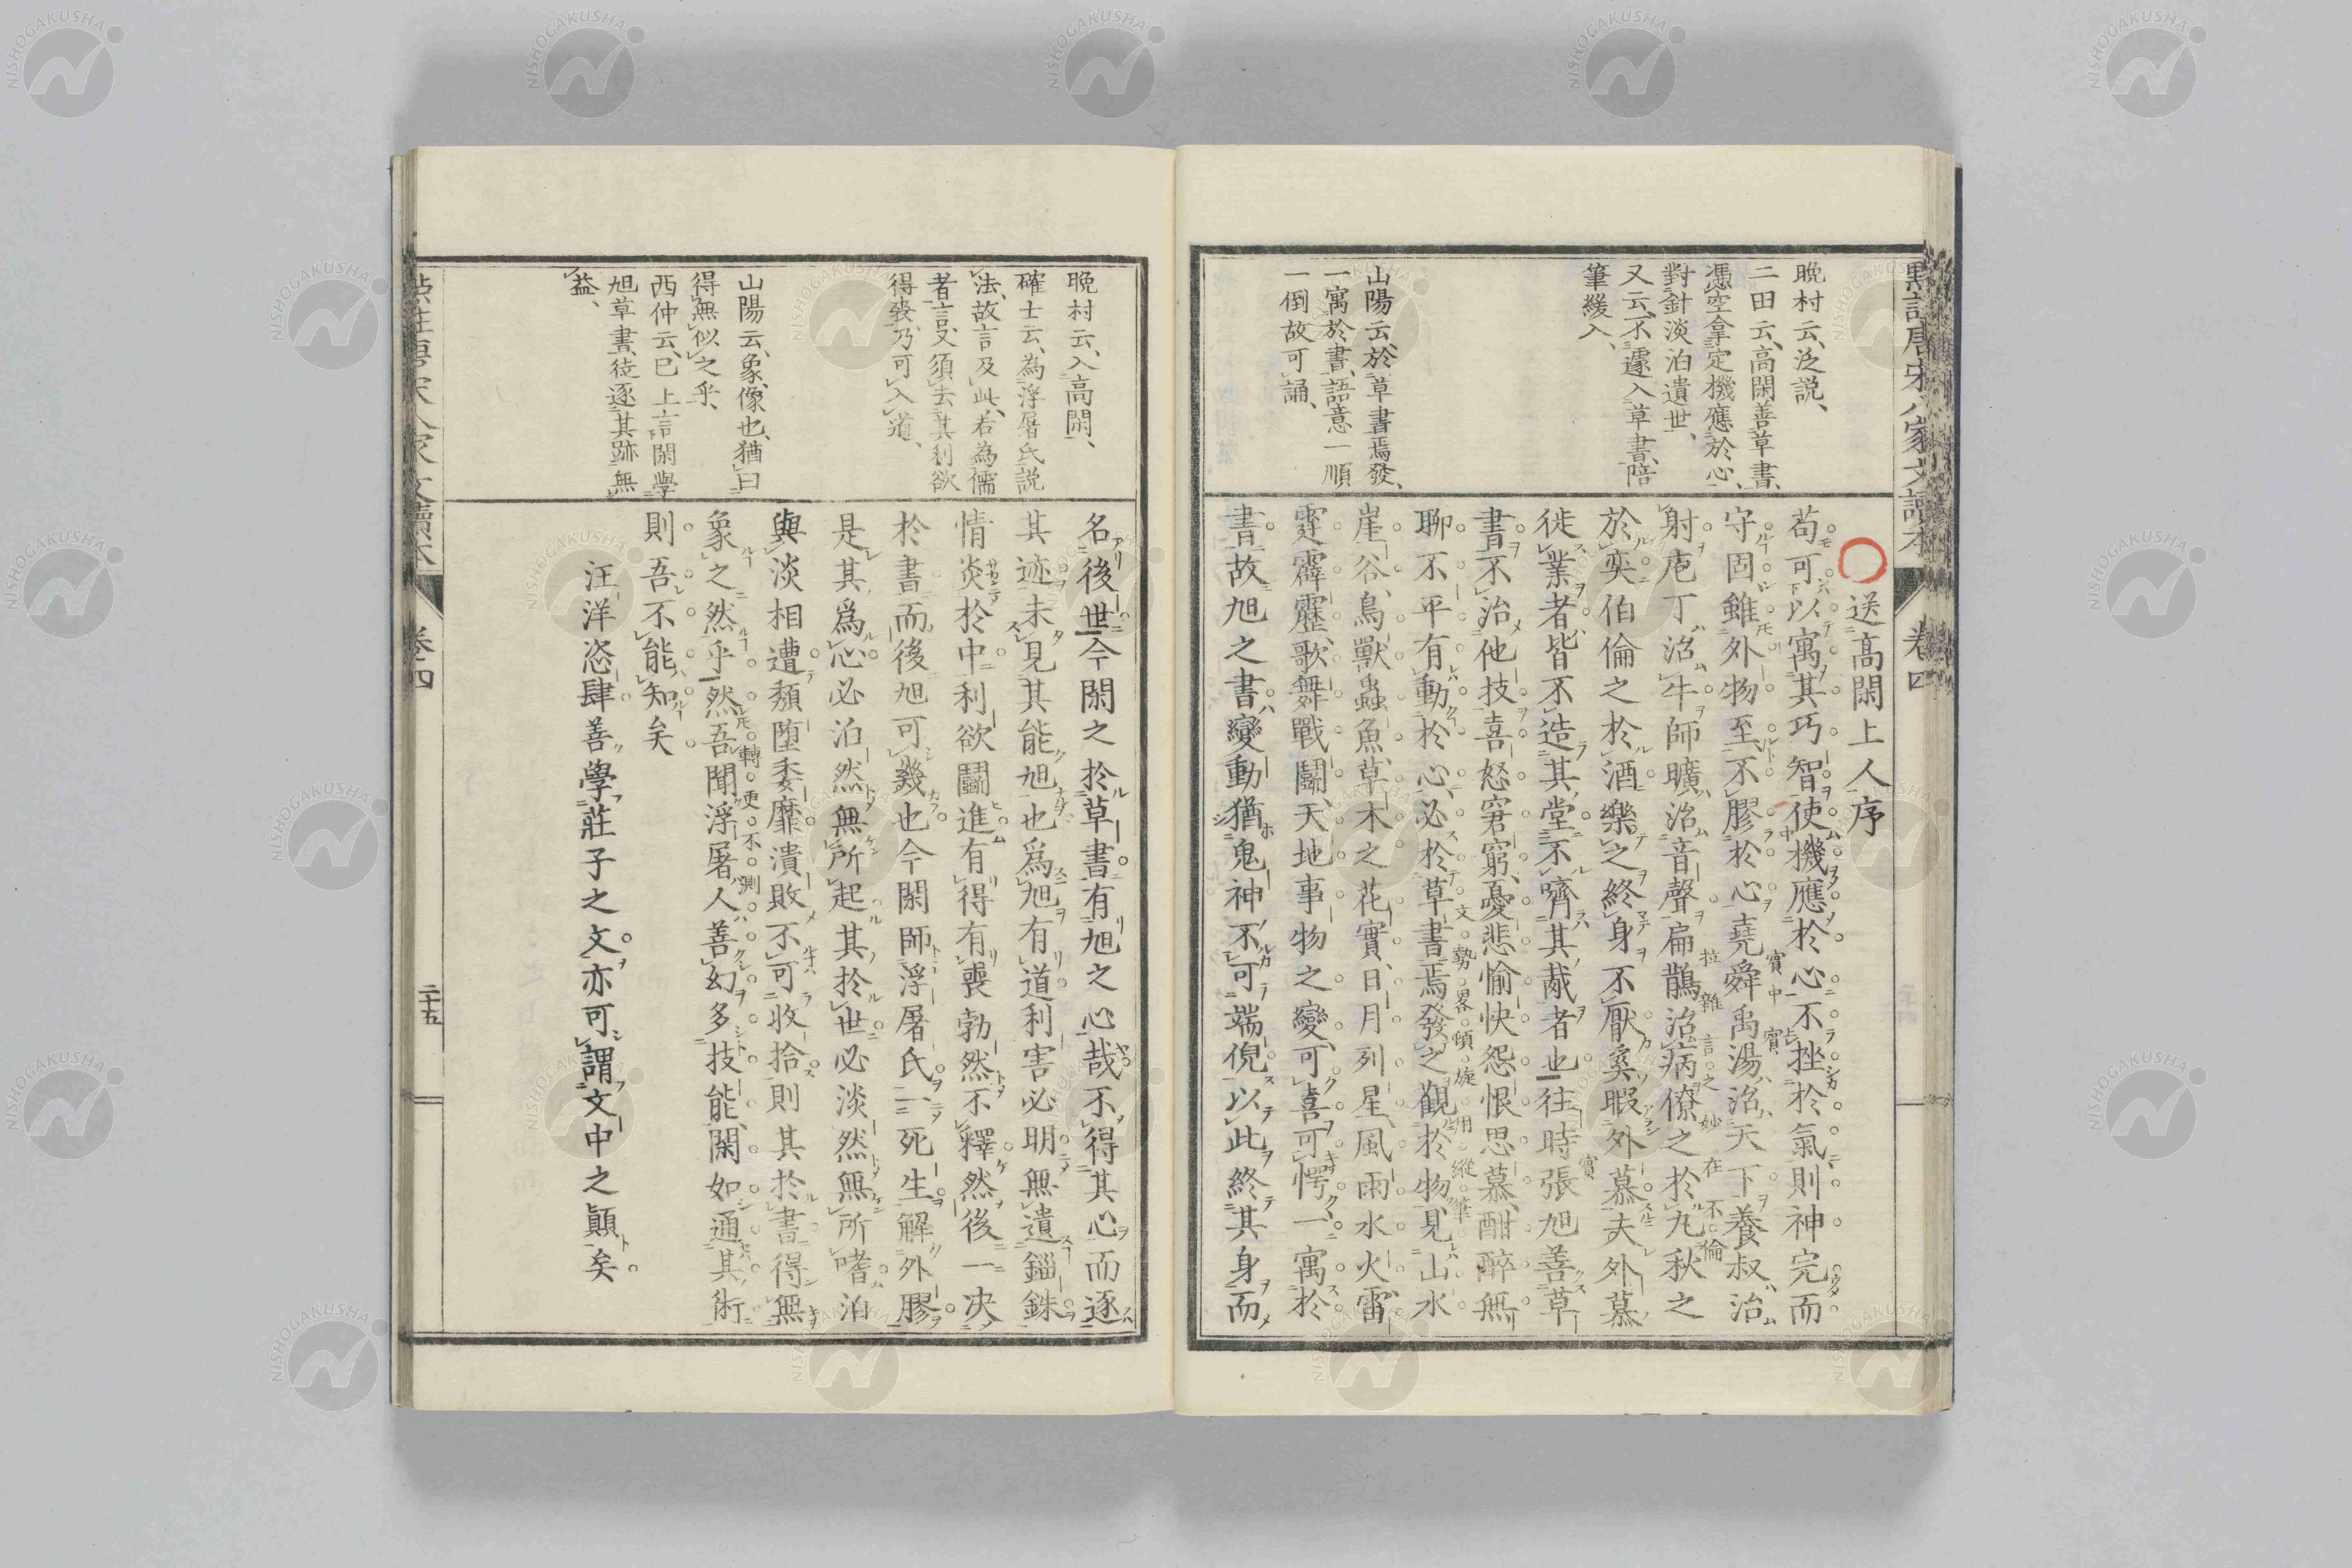 點註唐宋八家文讀本
卷四
晩村云、泛説、
二田云、高閑善草書、
憑空拿定機應於心、
對針淡泊遺世、
又云、不遽入草書、陪
筆緩入、
山陽云、於草書焉發、
一寓於書、語意一順
一倒故可誦、
送高閑上人序
苟可以寓其巧智使機應於心不挫於氣則神完而
守固雖外物至不膠於心堯舜禹湯治天下養叔治
射庖丁治牛師曠治音聲扁鵲治病僚之於丸秋之
於奕伯倫之於酒樂之終身不厭奚暇外慕夫外慕
徙業者皆不造其堂不嚌其胾者也往時張旭善草
書不治他技喜怒窘窮、憂悲愉快怨恨思慕、酣醉無
聊不平有動於心、必於草書焉發之觀於物、見山水
崖谷、鳥獸蟲魚、草木之花實、日月列星、風雨水火雷
霆霹靂、歌舞戰鬭、天地事物之變、可喜可愕、一寓於
書故旭之書變動猶鬼神不可端倪以此終其身而
實中
實
拉雜言之妙在不倫
實
文勢畧頓旋用縱筆
晩村云、入高閑、
確士云、為浮屠氏説
法、故言及此、若為儒
者言、又須去其利欲
得發、乃可入道、
山陽云、象、像也、猶曰
得無似之乎、
西仲云、已上言閑學
旭草書、徒逐其跡無
益、
名後世今閑之於草書有旭之心哉不得其心而逐
其迹未見其能旭也爲旭有道利害必明無遺錙銖
情炎於中利欲鬭進有得有喪勃然不釋然後一决
於書而後旭可幾也今閑師浮屠氏一死生解外膠
是其爲心必泊然無所起其於世必淡然無所嗜泊
與淡相遭頽堕委靡潰敗不可收拾則其於書得無
象之然乎然吾聞浮屠人善幻多技能、閑如通其術
則吾不能知矣
轉更不測
汪洋恣肆善學莊子之文亦可謂文中之顚矣
點註唐宋八家文讀本
卷四
二十五
NISHOGAKUSHA